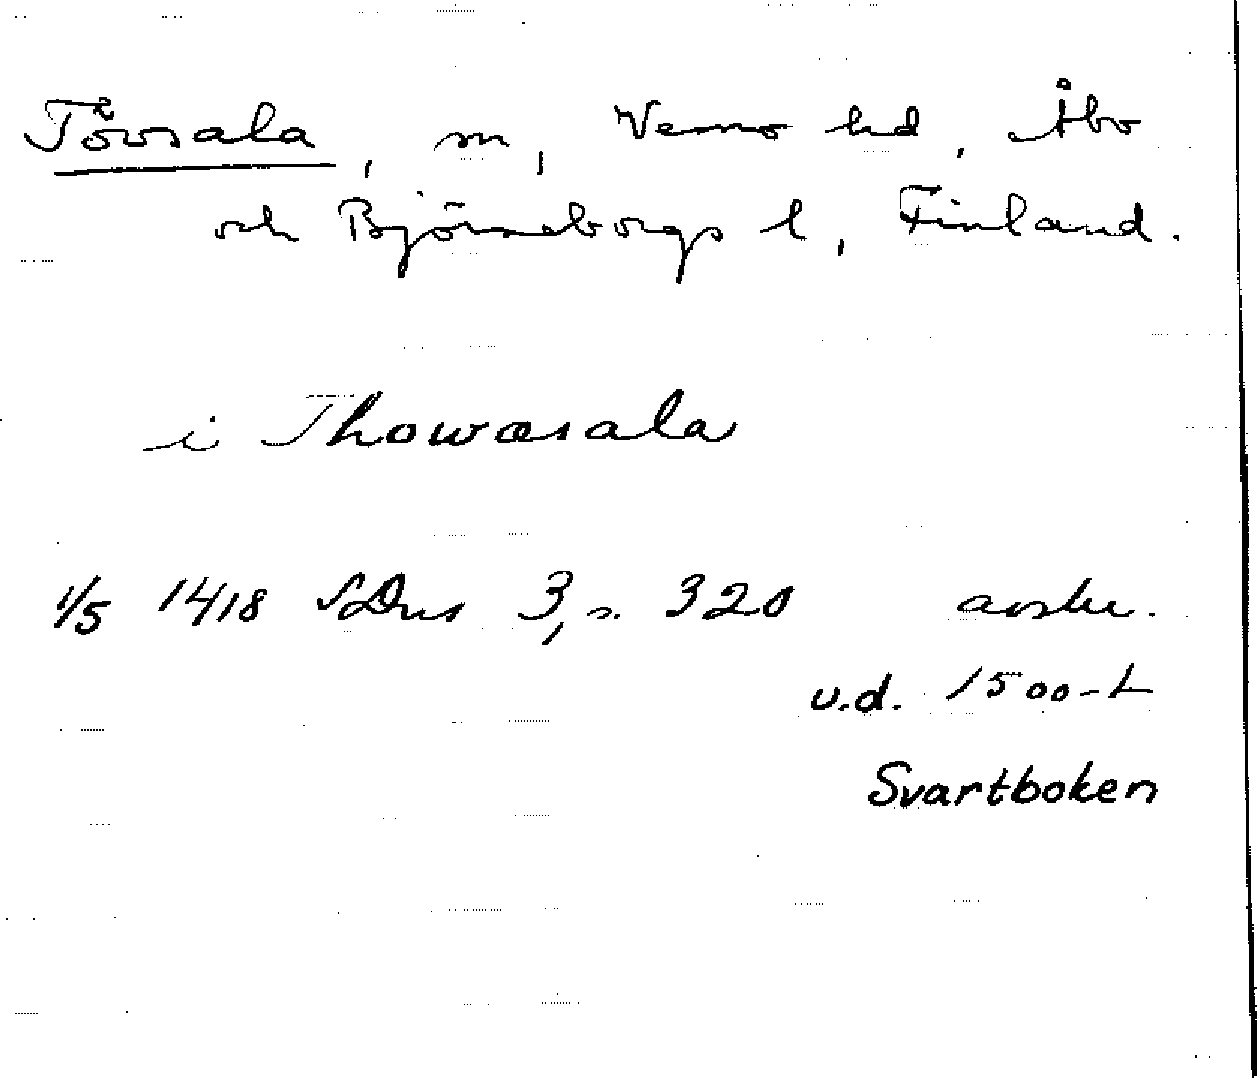 Tövsala, sn, Vemo hd, Åbo
och Björneborgs l, Finland.
i Thowæsala
1/5 1418 SDns 3, s. 320 avskr.
u.d. 1500-t
Svartboken